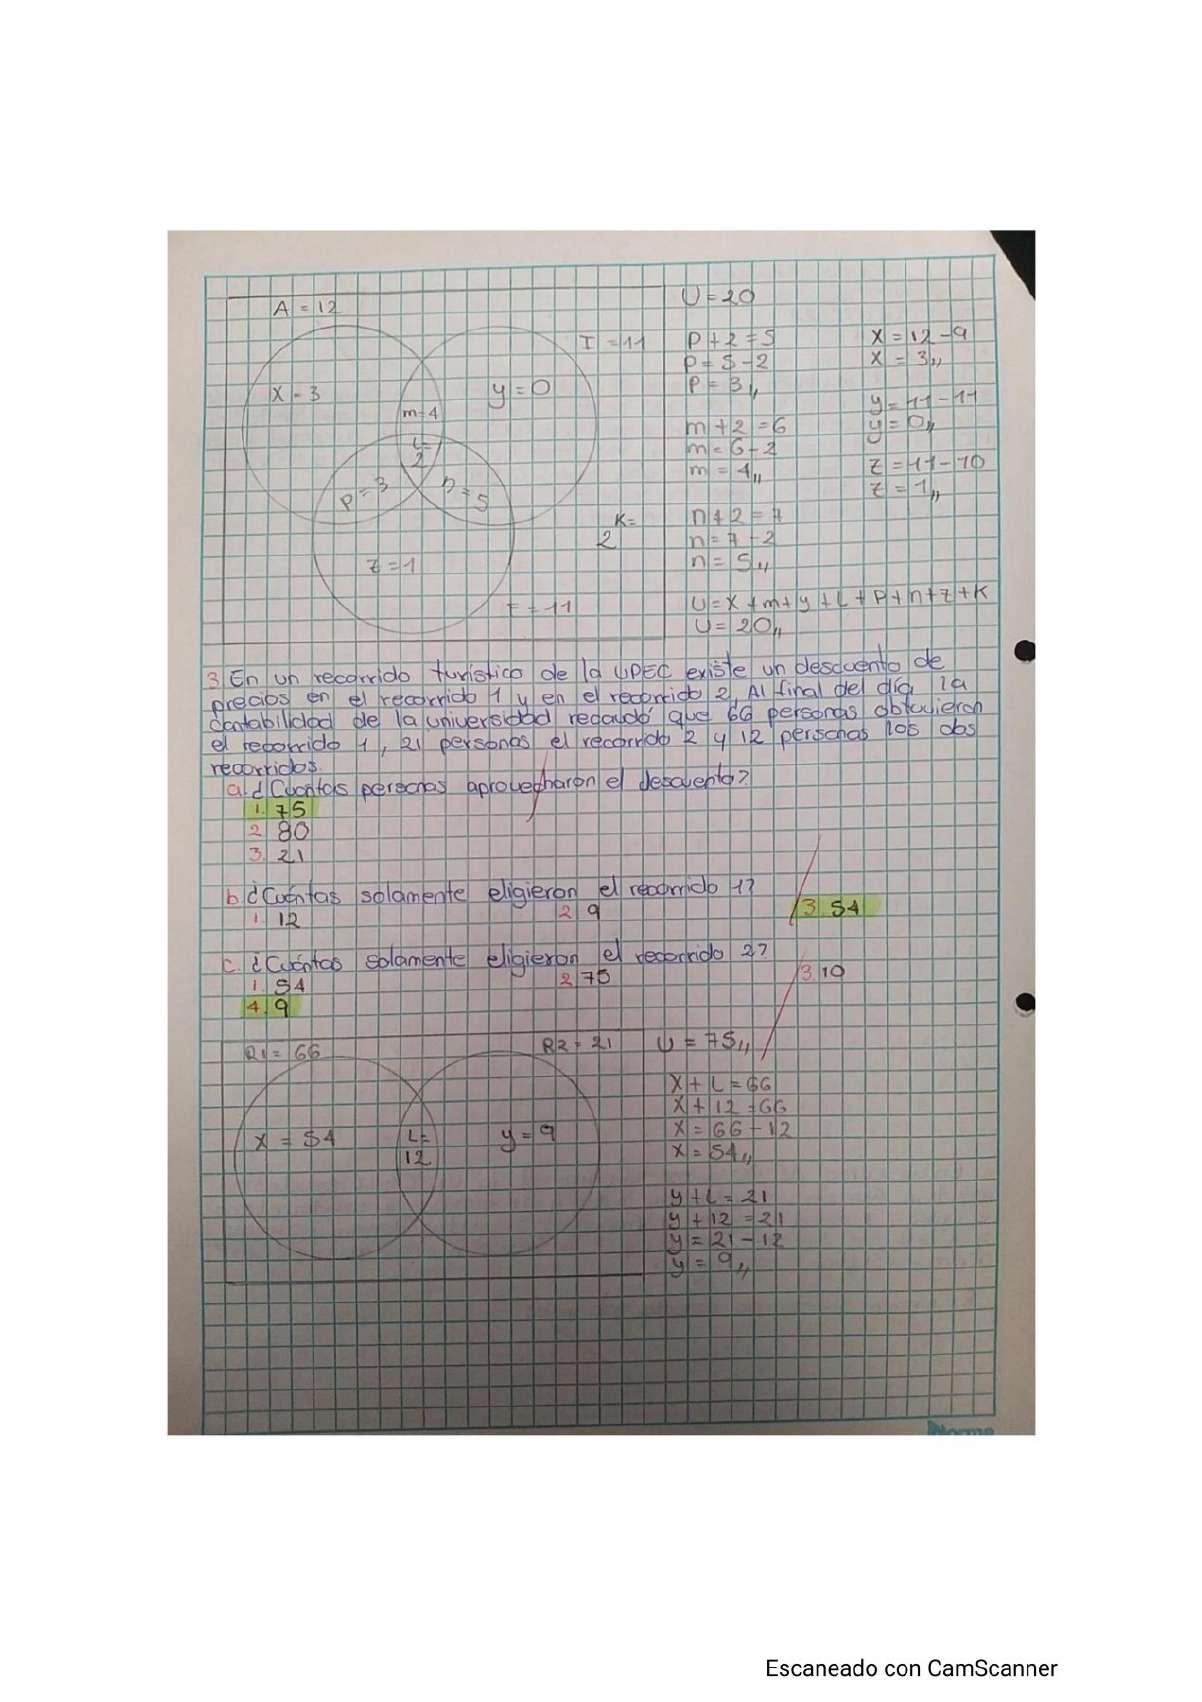 A = 12
U = 20
I = 11
x = 3
y = 0
m = 4
L = 2
p = 3
n = 5
z = 1
K = 2
F = 11
P + 2 = 5
P = 5 - 2
P = 3,,
m + 2 = 6
m = 6 - 2
m = 4,,
n + 2 = 7
n = 7 - 2
n = 5,,
U = x + m + y + L + P + n + z + K
U = 20,,
X = 12 - 9
X = 3,,
y = 11 - 11
y = 0,,
z = 11 - 10
z = 1,,
3 En un recorrido turístico de la UPEC existe un descuento de
precios en el recorrido 1 y en el recorrido 2, Al final del día la
contabilidad de la universidad recaudó que 66 personas obtuvieron
el recorrido 1, 21 personas el recorrido 2 y 12 personas los dos
recorridos.
a. ¿Cuántas personas aprovecharon el descuento?
1. 75
2 80
3. 21
b. ¿Cuántas solamente eligieron el recorrido 1?
1. 12 2 9 3. 54
c. ¿Cuántas solamente eligieron el recorrido 2?
1. 54 2 75 3. 10
4. 9
R1 = 66 R2 = 21 U = 75,,
x = 54 L = 12 y = 9
X + L = 66
X + 12 = 66
X = 66 - 12
X = 54,,
y + L = 21
y + 12 = 21
y = 21 - 12
y = 9,,
Norma
Escaneado con CamScanner